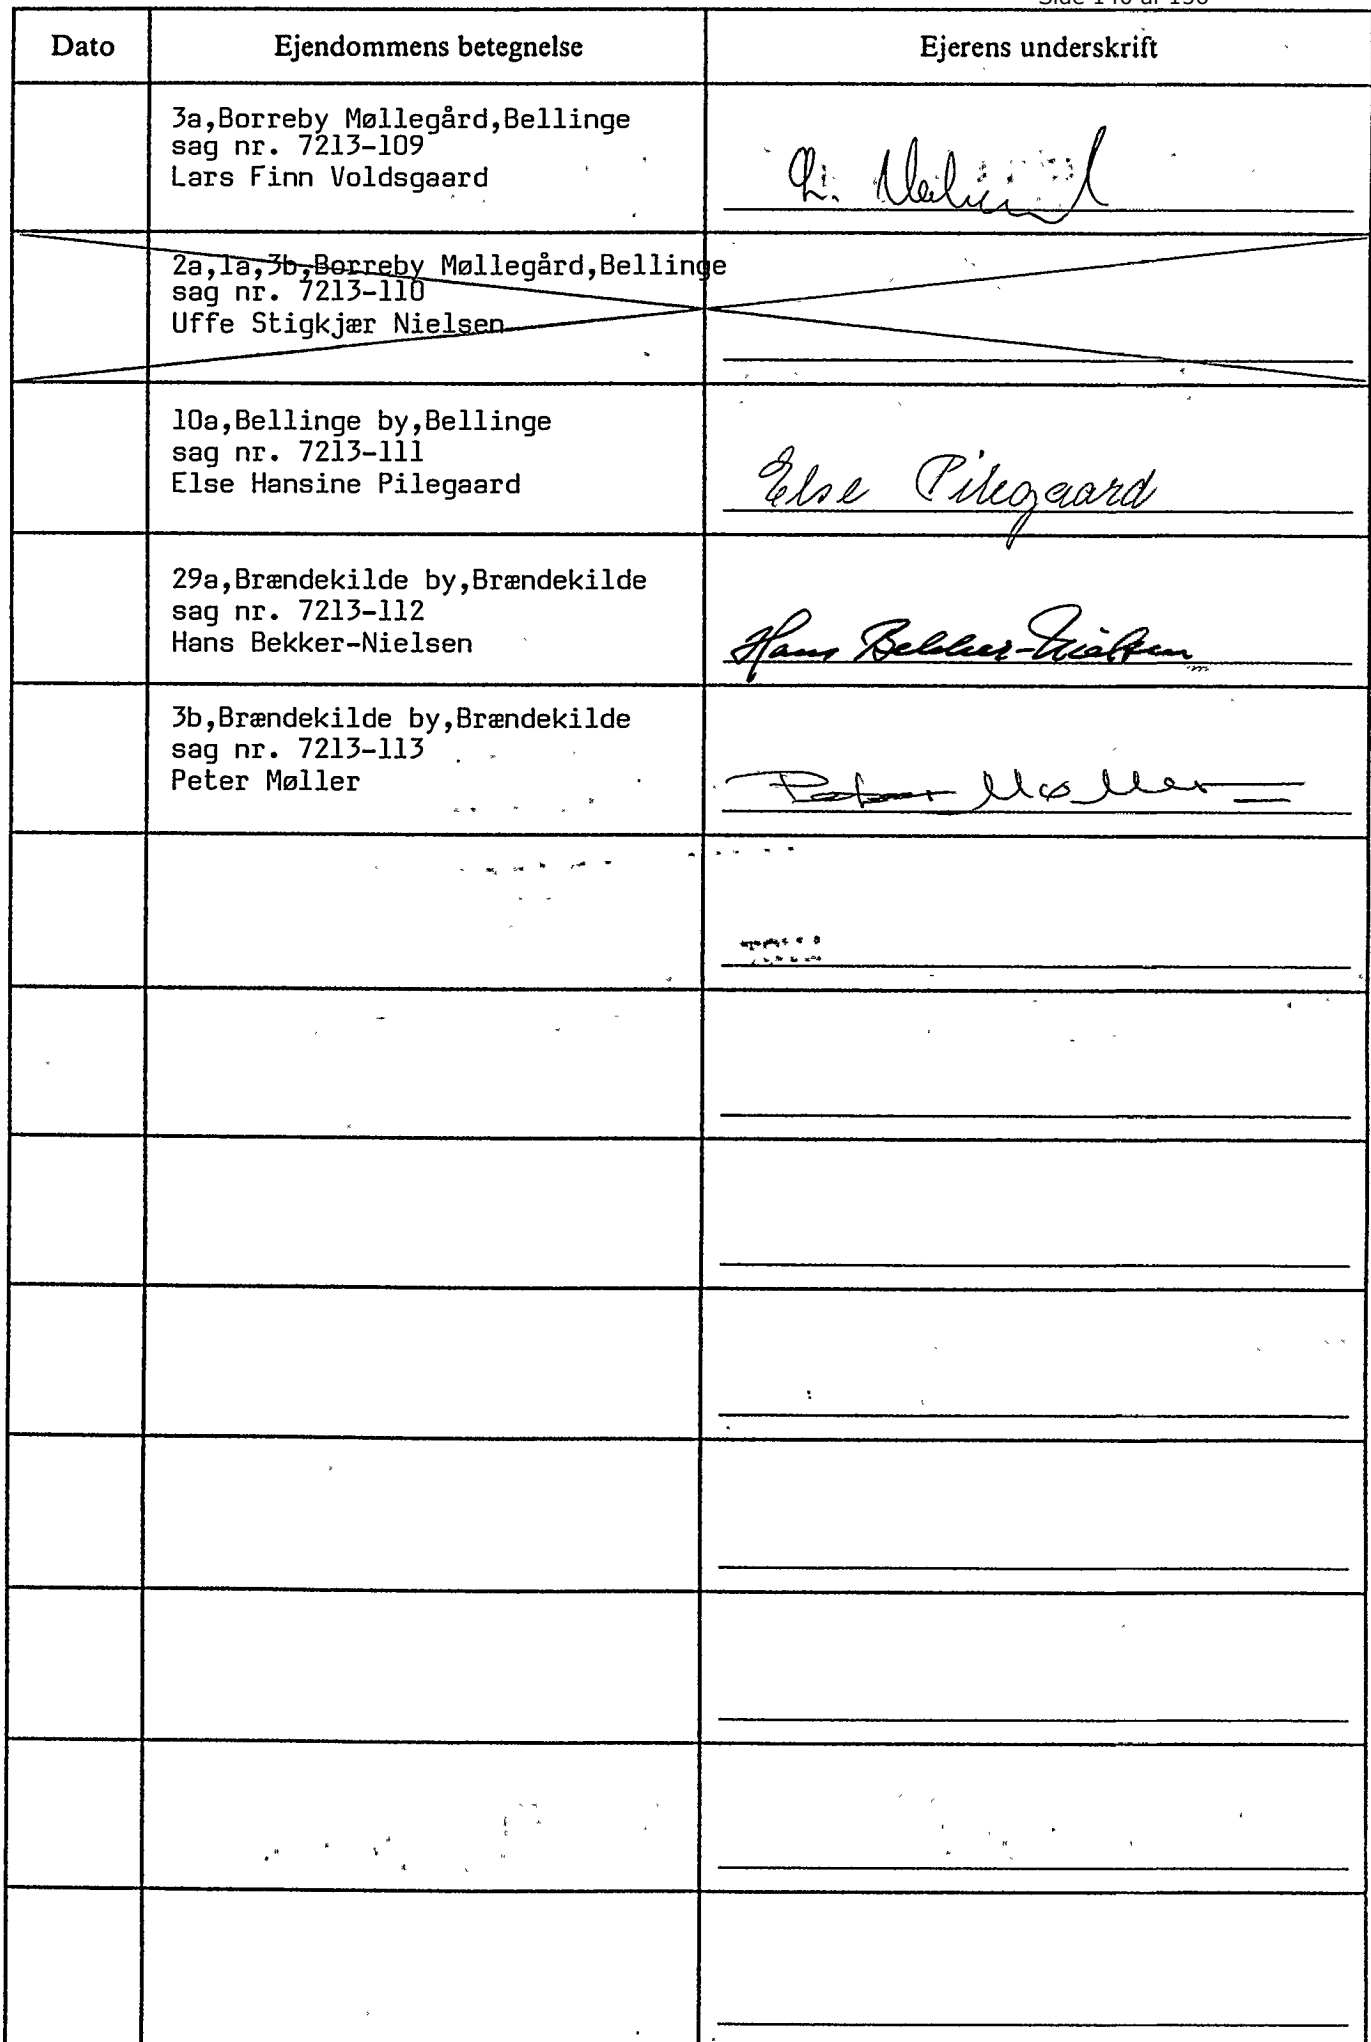 Dato Ejendommens betegnelse Ejerens underskrift
3a,Borreby Møllegård,Bellinge
sag nr. 7213-109
Lars Finn Voldsgaard
2a,1a,3b,Borreby Møllegård,Bellinge
sag nr. 7213-110
Uffe Stigkjær Nielsen
10a,Bellinge by,Bellinge
sag nr. 7213-111
Else Hansine Pilegaard
Else Pilegaard
29a,Brændekilde by,Brændekilde
sag nr. 7213-112
Hans Bekker-Nielsen
Hans Bekker-Nielsen
3b,Brændekilde by,Brændekilde
sag nr. 7213-113
Peter Møller
Peter Møller